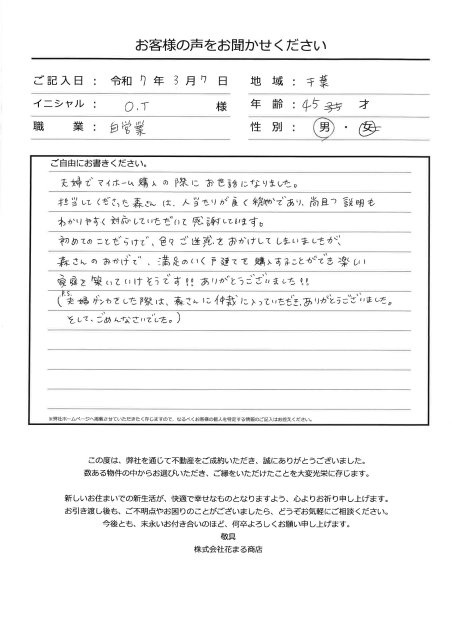 お客様の声をお聞かせください
ご記入日 : 令和 7 年 3 月 7 日
地 域 : 千葉
イニシャル : O.T 様
年 齢 : 45 才
職 業 : 自営業
性 別 : 男 ・ 女
ご自由にお書きください。
夫婦でマイホーム購入の際にお世話になりました。
担当してくださった森さんは、人当たりが良く綺麗であり、尚且つ説明も
わかりやすく対応していただいて感謝しています。
初めてのことだらけで、色々ご迷惑をおかけしてしまいましたが、
森さんのおかげで、満足のいく戸建てを購入することができ楽しい
家庭を築いていけそうです!! ありがとうございました!!
P.S.
(夫婦ゲンカをした際は、森さんに仲裁に入っていただき、ありがとうございました。
そして、ごめんなさいでした。)
※弊社ホームページへ掲載させていただきたく存じますので、なるべくお客様の個人を特定する情報のご記入はお控えください。
この度は、弊社を通じて不動産をご成約いただき、誠にありがとうございました。
数ある物件の中からお選びいただき、ご縁をいただけたことを大変光栄に存じます。
新しいお住まいでの新生活が、快適で幸せなものとなりますよう、心よりお祈り申し上げます。
お引き渡し後も、ご不明点やお困りのことがございましたら、どうぞお気軽にご相談ください。
今後とも、末永いお付き合いのほど、何卒よろしくお願い申し上げます。
敬具
株式会社花まる商店